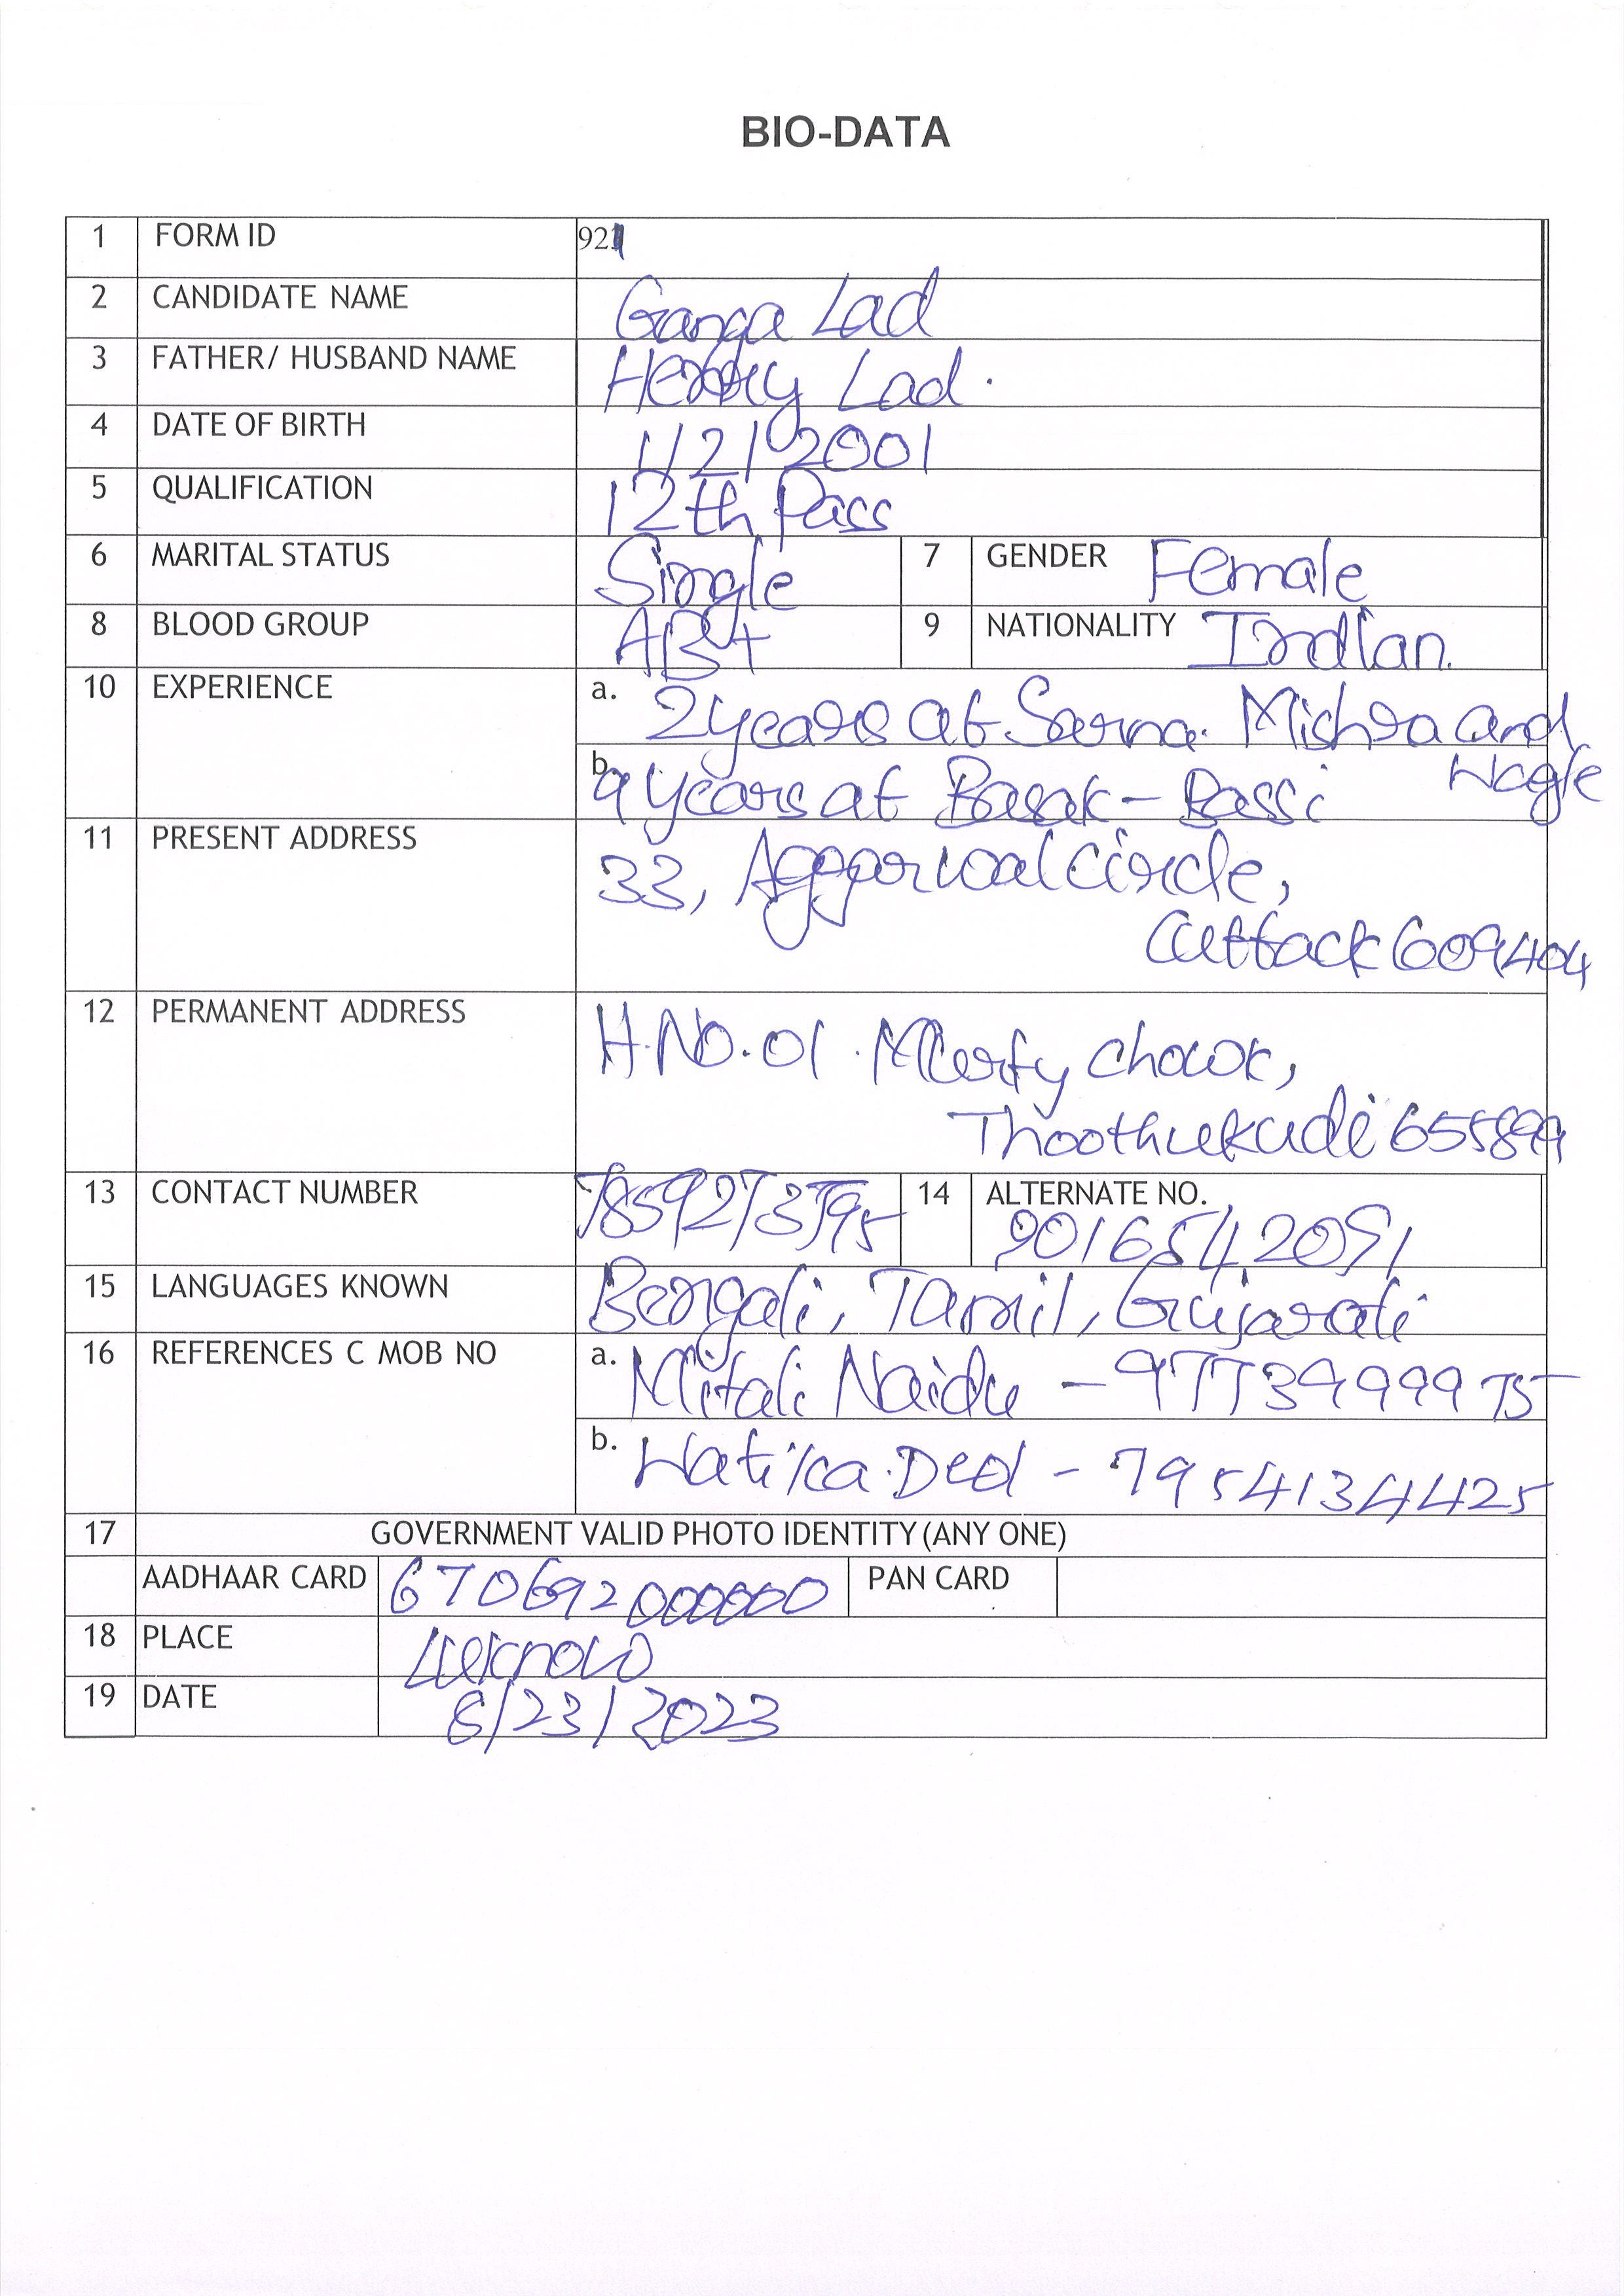 BIO-DATA
1 FORM ID 921
2 CANDIDATE NAME Ganga Lad
3 FATHER/ HUSBAND NAME Lad.
4 DATE OF BIRTH 1/21/2001
5 QUALIFICATION 12th Pass
6 MARITAL STATUS Single 7 GENDER Female
8 BLOOD GROUP AB+ 9 NATIONALITY Indian.
10 EXPERIENCE a. 2 years at Sarna. Mishra and
Wagle
b. 9 years at Basak - Bassi
11 PRESENT ADDRESS 33, Aggarwal circle,
Cuttack 609404
12 PERMANENT ADDRESS H.No. 01. chowk,
Thoothukudi 655899
13 CONTACT NUMBER 7859273795 14 ALTERNATE NO.
9016542091
15 LANGUAGES KNOWN Bengali, Tamil, Gujarati
16 REFERENCES C MOB NO a. Mitali Naidu - 9773999975
b. Watika Deol - 7954134425
17 GOVERNMENT VALID PHOTO IDENTITY (ANY ONE)
AADHAAR CARD 670692000000 PAN CARD
18 PLACE Lucknow
19 DATE 8/23/2023